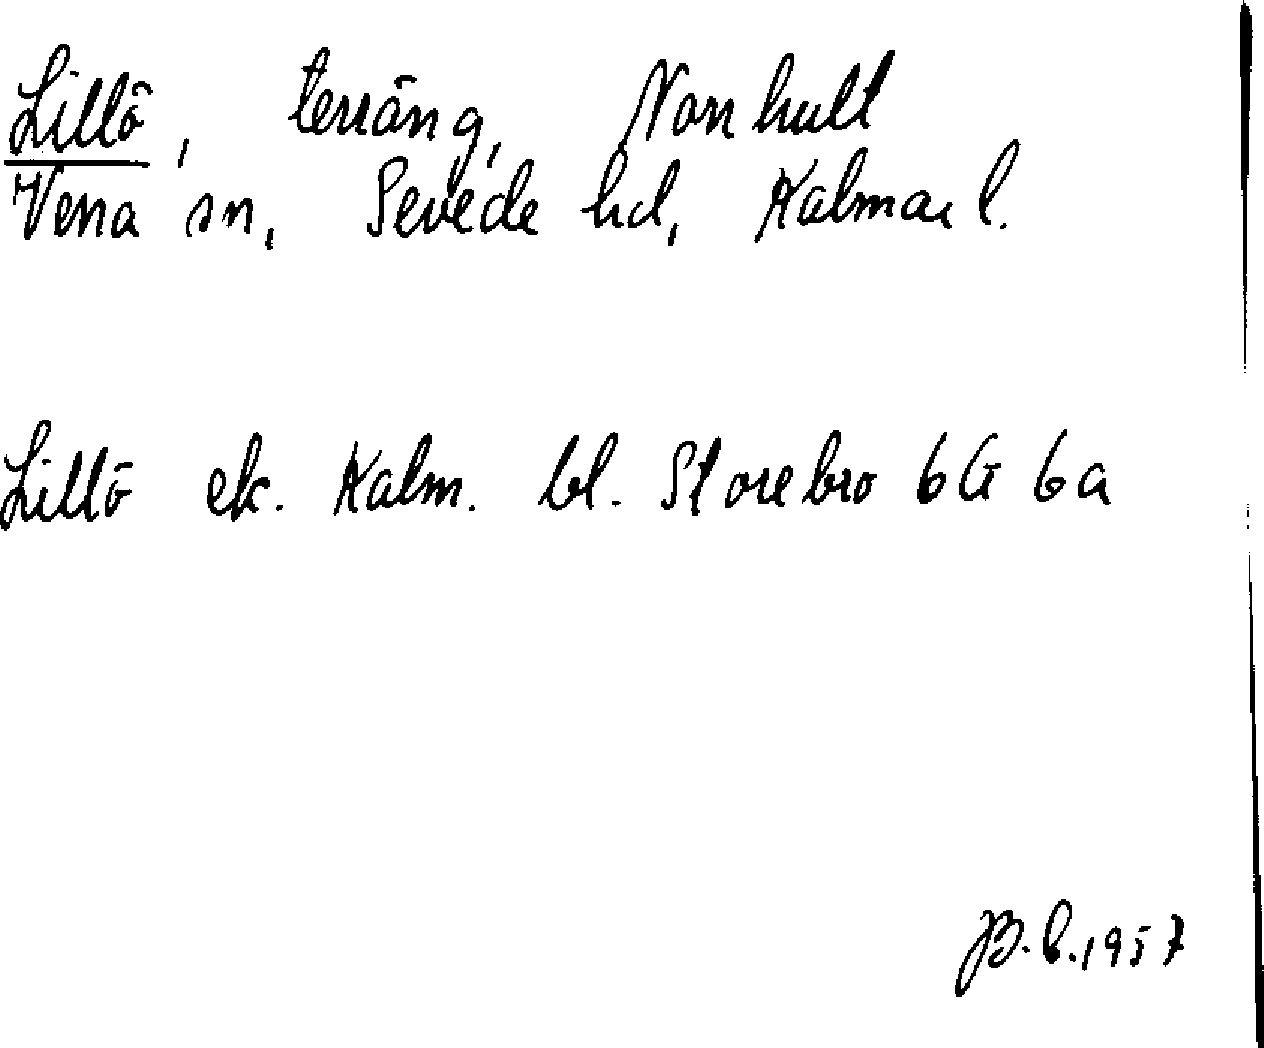 Lillö, terräng, Norrhult
Vena sn, Sevede hd, Kalmar l.
Lillö ek. Kalm. bl. Storebro 6G 6a
B.L.1957